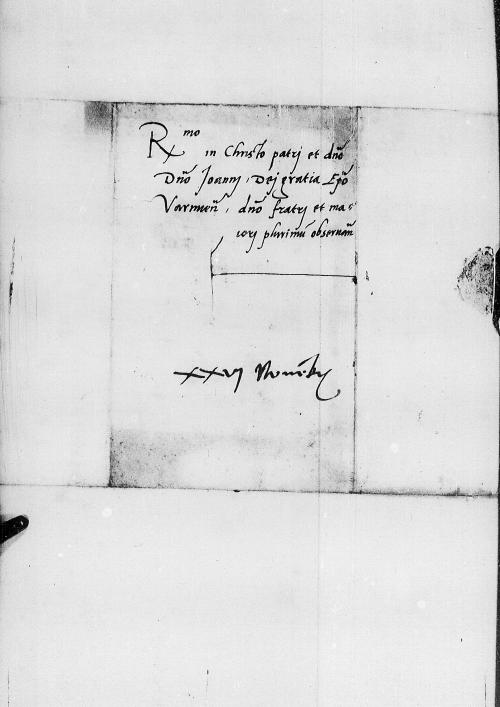 Rmo in Christo patri et dno
Dno Joanni, Dei gratia Epo
Varmien, dno fratri et ma-
iori plurimu observan
XXVI Novembr